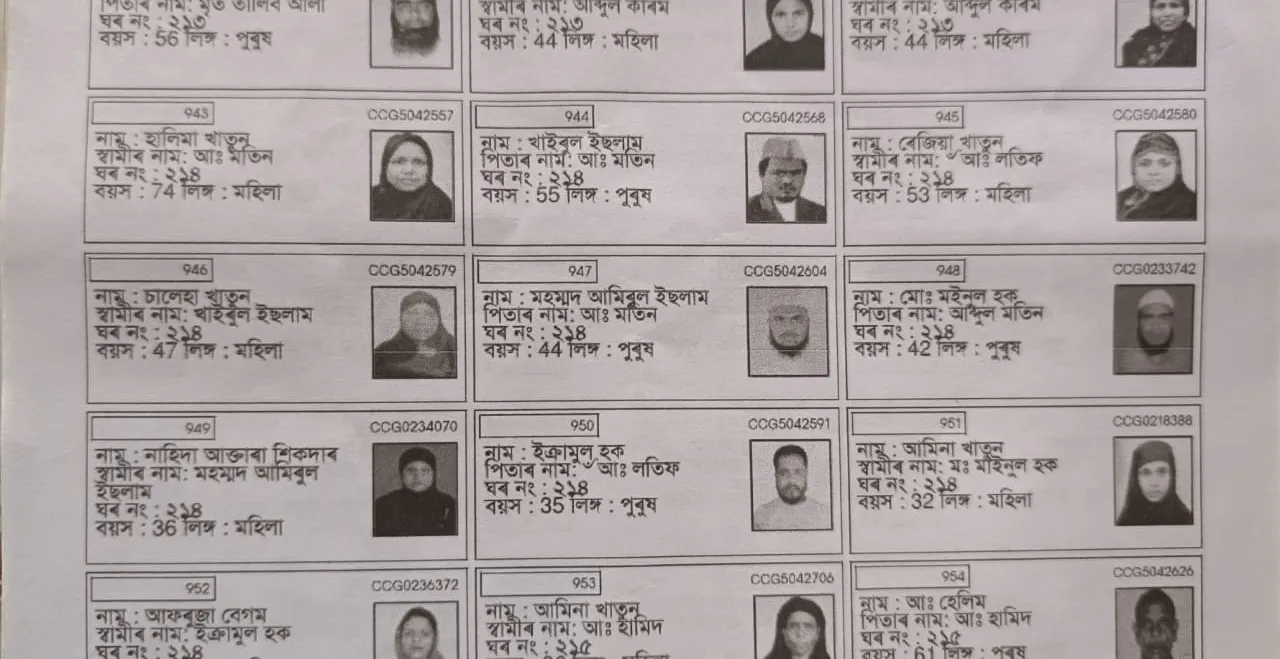 ঘৰ নং : ২১৩
বয়স : 56 লিঙ্গ : পুৰুষ
স্বামীৰ নাম: আব্দুল কৰিম
ঘৰ নং : ২১৩
বয়স : 44 লিঙ্গ : মহিলা
স্বামীৰ নাম: আব্দুল কৰিম
ঘৰ নং : ২১৩
বয়স : 44 লিঙ্গ : মহিলা
943 CCG5042557
নাম : হালিমা খাতুন
স্বামীৰ নাম: আঃ মতিন
ঘৰ নং : ২১৪
বয়স : 74 লিঙ্গ : মহিলা
944 CCG5042568
নাম : খাইৰুল ইছলাম
পিতাৰ নাম: আঃ মতিন
ঘৰ নং : ২১৪
বয়স : 55 লিঙ্গ : পুৰুষ
945 CCG5042580
নাম : ৰেজিয়া খাতুন
স্বামীৰ নাম: আঃ লতিফ
ঘৰ নং : ২১৪
বয়স : 53 লিঙ্গ : মহিলা
946 CCG5042579
নাম : চালেহা খাতুন
স্বামীৰ নাম: খাইৰুল ইছলাম
ঘৰ নং : ২১৪
বয়স : 47 লিঙ্গ : মহিলা
947 CCG5042604
নাম : মহম্মদ আমিৰুল ইছলাম
পিতাৰ নাম: আঃ মতিন
ঘৰ নং : ২১৪
বয়স : 44 লিঙ্গ : পুৰুষ
948 CCG0233742
নাম : মোঃ মইনুল হক
পিতাৰ নাম: আব্দুল মতিন
ঘৰ নং : ২১৪
বয়স : 42 লিঙ্গ : পুৰুষ
949 CCG0234070
নাম : নাহিদা আক্তাৰা শিকদাৰ
স্বামীৰ নাম: মহম্মদ আমিৰুল
ইছলাম
ঘৰ নং : ২১৪
বয়স : 36 লিঙ্গ : মহিলা
950 CCG5042591
নাম : ইক্ৰামুল হক
পিতাৰ নাম: আঃ লতিফ
ঘৰ নং : ২১৪
বয়স : 35 লিঙ্গ : পুৰুষ
951 CCG0218388
নাম : আমিনা খাতুন
স্বামীৰ নাম: মঃ মইনুল হক
ঘৰ নং : ২১৪
বয়স : 32 লিঙ্গ : মহিলা
952 CCG0236372
নাম : আফৰুজা বেগম
স্বামীৰ নাম: ইক্ৰামুল হক
ঘৰ নং : ২১৪
953 CCG5042706
নাম : আমিনা খাতুন
স্বামীৰ নাম: আঃ হামিদ
ঘৰ নং : ২১৫
954 CCG5042626
নাম : আঃ হেলিম
পিতাৰ নাম: আঃ হামিদ
ঘৰ নং : ২১৫
বয়স : 61 লিঙ্গ : পুৰুষ